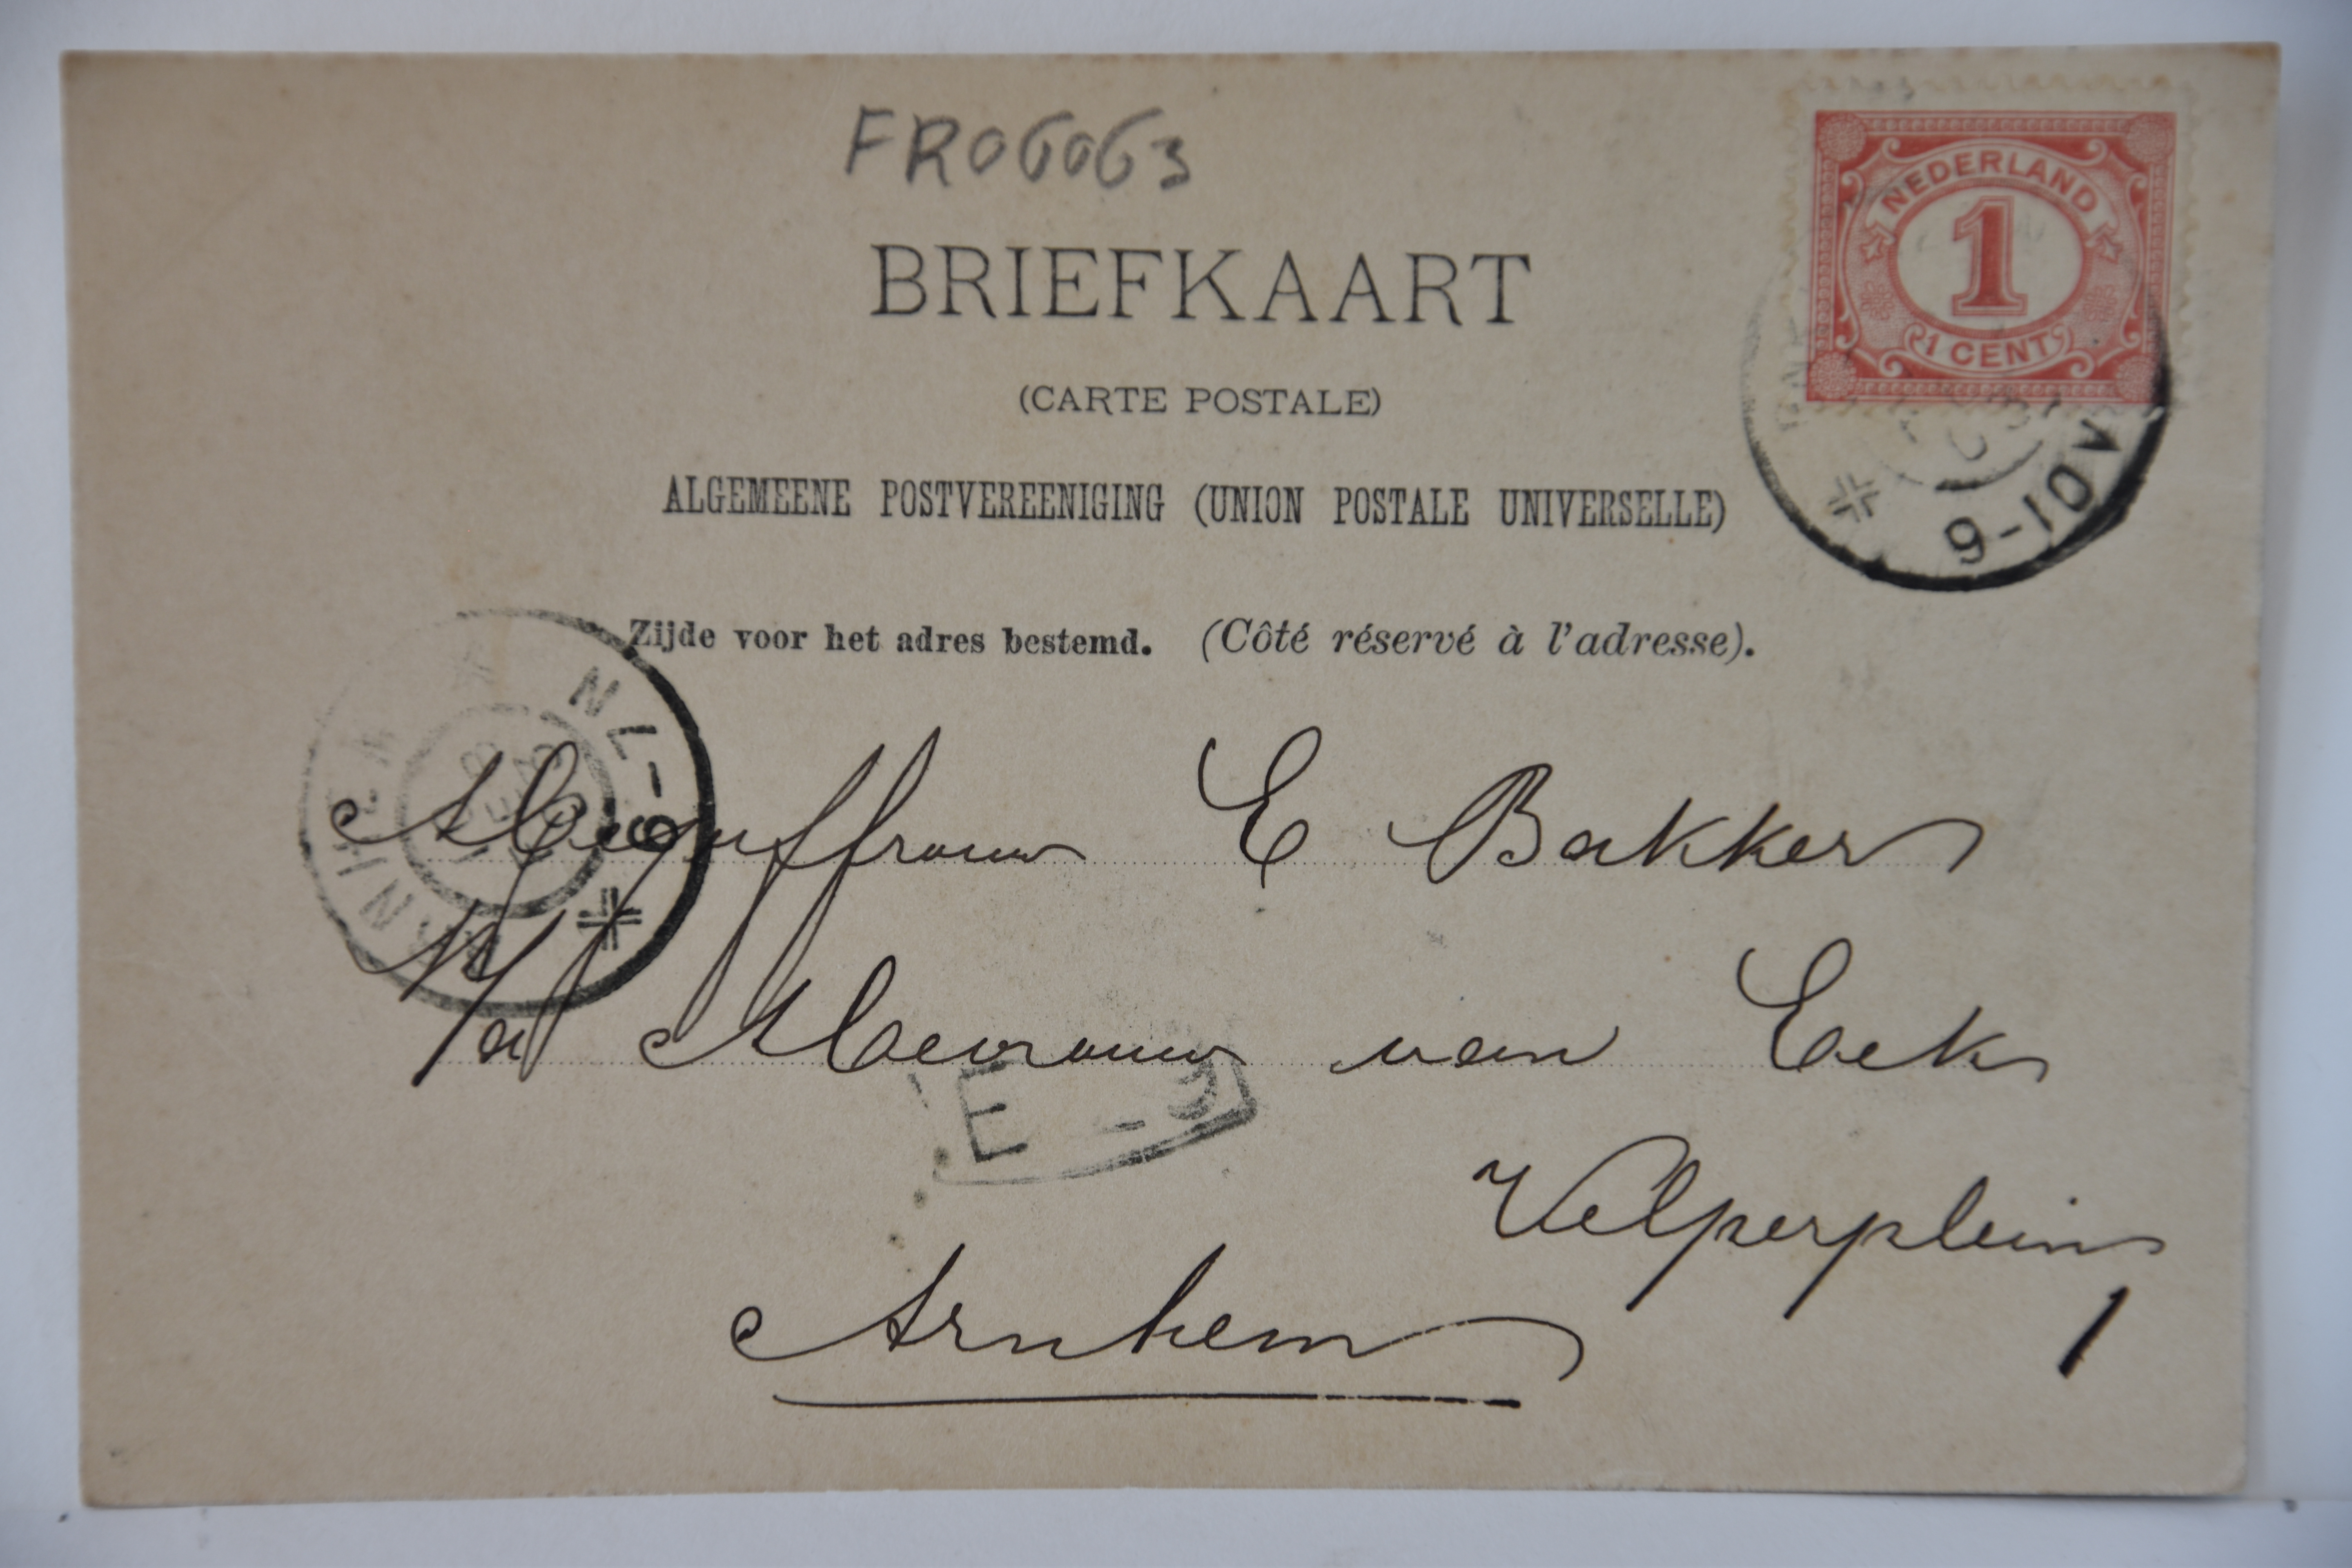 FR06063
BRIEFKAART
(CARTE POSTALE)
ALGEMEENE POSTVEREENIGING (UNION POSTALE UNIVERSELLE)
Zijde voor het adres bestemd. (Côté réservé à l'adresse).
NEDERLAND
1
1 CENT
9-10V
Mejuffrouw E Bakker
p/a Mevrouw van Eck
E
Velperplein
1
Arnhem